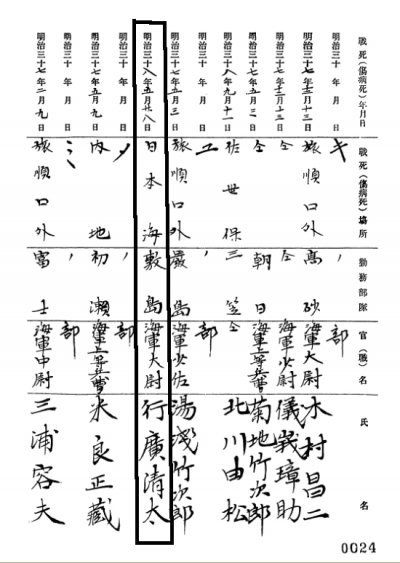 戰死(傷病死)年月日 戰死(傷病死)場所 勤務部隊 官(職)名 氏名
明治三十 年 月 日 キ 〃 部
明治三十七年十二月十三日 旅順口外 高砂 海軍大尉 木村昌二
明治三十七年十二月十三日 仝 仝 海軍少尉 儀峩璋助
明治三十七年五月 日 仝 朝日 海軍上等兵曹 菊地竹次郎
明治三十八年九月十一日 佐世保 三笠 仝 北川由松
明治三十 年 月 日 ユ 〃 部
明治三十七年五月三日 旅順口外 嚴島 海軍少佐 湯淺竹次郎
明治三十八年五月廿八日 日本海 敷島 海軍大尉 行廣清太
明治三十 年 月 日 メ 〃 部
明治三十七年五月九日 内地 初瀬 海軍上等兵曹 米良正藏
明治三十 年 月 日 ミ 〃 部
明治三十七年二月九日 旅順口外 富士 海軍中尉 三浦容夫
0024